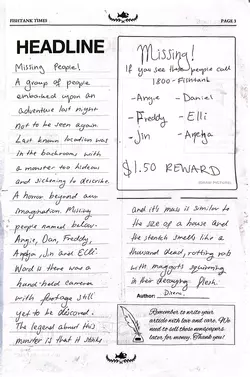 FISHTANK TIMES
PAGE 3
HEADLINE
Missing People!
A group of people
embarked upon an
adventure last night
Not to be seen again
Last known location was
in the backrooms with
a monster too hideous
and sickening to describe.
A horror beyond our
imagination. Missing
people named below.
Angie, Dan, Freddy,
Jin and Elli.
Word is there was a
hand-held camera
with footage still
yet to be discoverd.
The legend about this
monster is that it stinks
Missing!
If you see these people call
1800-Fishtank
-Angie
-Daniel
-Freddy
-Elli
-Jin
$1.50 REWARD
and it's mass is similar to
the size of a house and
the stench smells like a
thousand dead, rotting rats
with maggots squirming
in their decaying flesh.
Author:
Remember to write your
articles with love and care. We
need to sell these newspapers
later for money. Thank you!